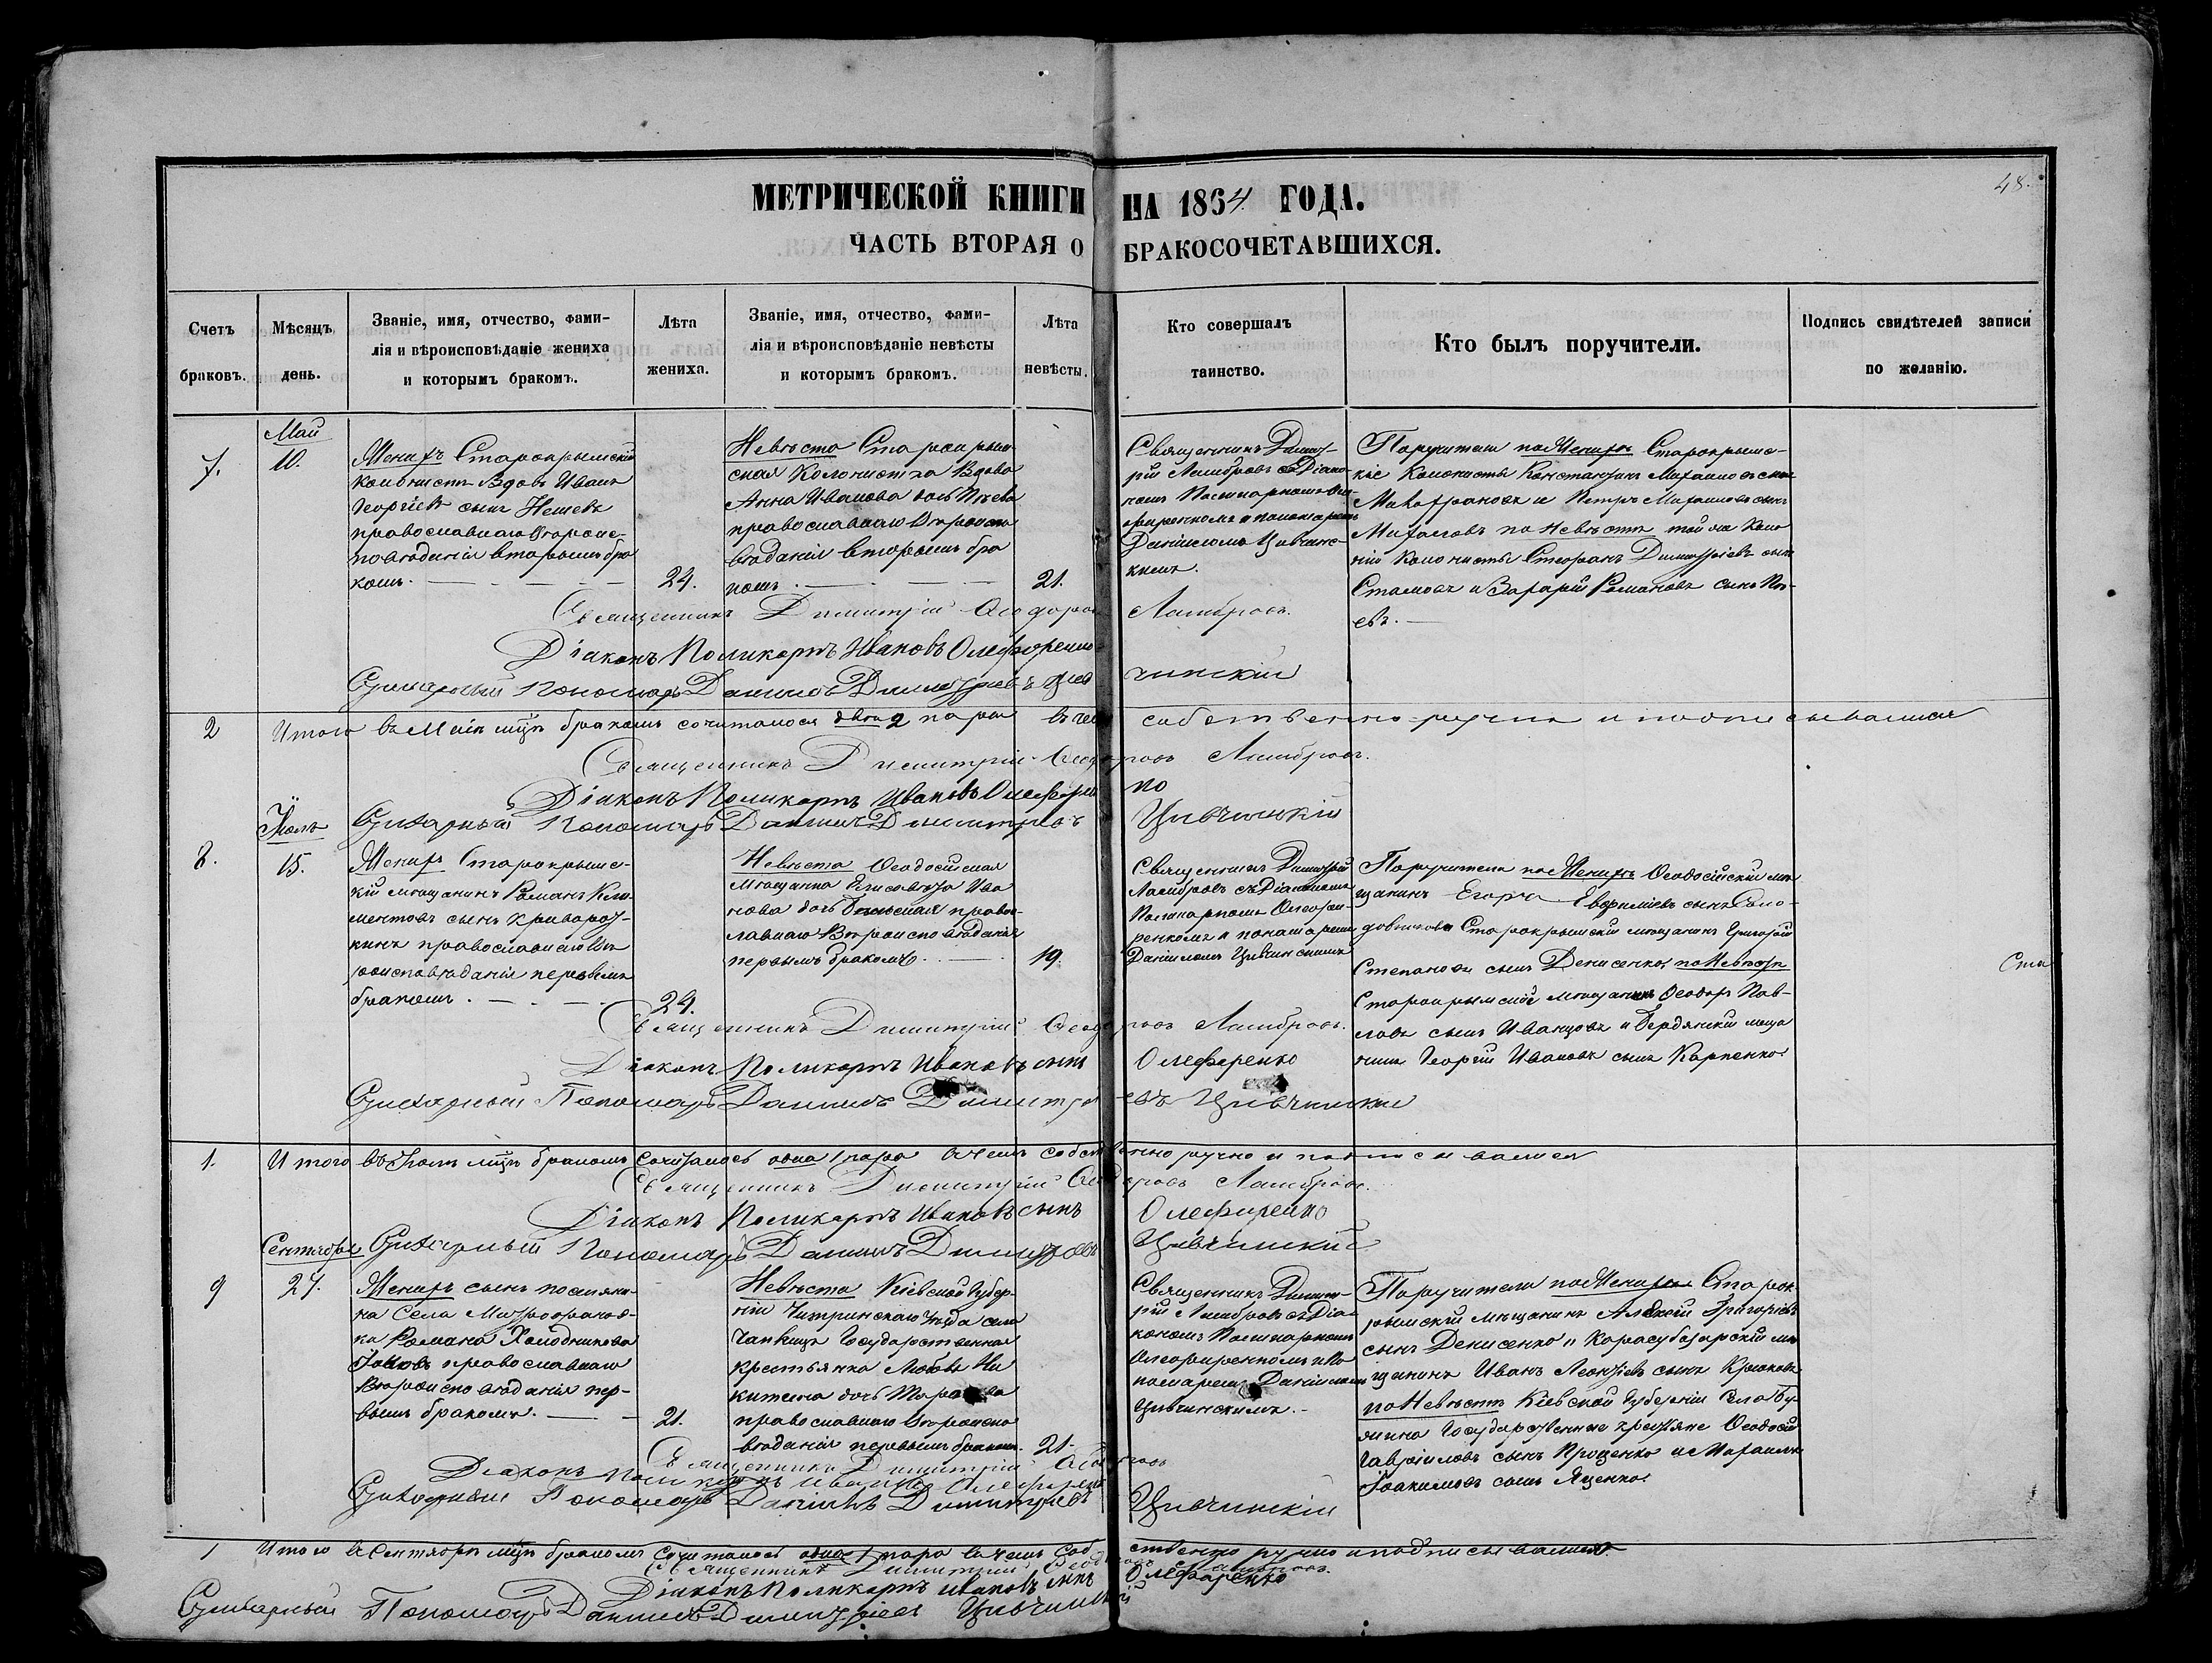 48.
МЕТРИЧЕСКОЙ КНИГИ НА 1864 ГОДА.
ЧАСТЬ ВТОРАЯ О БРАКОСОЧЕТАВШИХСЯ.
Счетъ браковъ.
Мѣсяцъ день.
Званіе, имя, отчество, фами-
лія и вѣроисповѣданіе жениха
и которымъ бракомъ.
Лѣта жениха.
Званіе, имя, отчество, фами-
лія и вѣроисповѣданіе невѣсты
и которымъ бракомъ.
Лѣта невѣсты.
Кто совершалъ
таинство.
Кто былъ поручители.
Подпись свидѣтелей записи
по желанію.
7.
Май
10.
Женихъ Старокрымскій
колонистъ Вдовъ Иванъ
Георгіевъ сынъ Нешевъ
православнаго Вѣроис-
повѣданія вторымъ бра
комъ.
24.
Невѣста Старокрым-
ская Колонистка Вдова
Анна Иванова дочь
православнаго Вѣроиспо
вѣданія вторымъ бра
комъ.
21.
Священникъ Димит-
рій Ламбровъ съ Діако-
номъ Поликарпомъ Оле-
ференкомъ и пономаремъ
Даніиломъ Цивчинс-
кимъ.
Поручители по Женихѣ Старокрымс-
кіе Колонисты Константинъ Михаиловъ сынъ
и Петръ Михаиловъ сынъ
Михаловъ по Невѣстѣ той же Коло
ніи Колонисты Стефанъ Димитріевъ сынъ
Стамовъ и Захарій Романовъ сынъ
евъ.
Священникъ Димитрій Ѳеодоровъ Ламбровъ.
Діаконъ Поликарпъ Ивановъ Олеференко
Пономарь Даніилъ Димитріевъ Цивчинскій
2 Итого въ Маѣ мцѣ бракомъ сочиталося два 2 пары въ чемъ собственноручно и подписываемся
Священникъ Димитрій Ѳеодоровъ Ламбровъ.
Діаконъ Поликарпъ Ивановъ Олеференко
Пономарь Даніилъ Димитріевъ Цивчинскій
8.
Іюль
15.
Женихъ Старокрымс-
кій мѣщанинъ Романъ Кли-
ментовъ сынъ
православнаго Вѣ
роисповѣданія первымъ
бракомъ.
24.
Невѣста Ѳеодосійская
мѣщанка Елисавета Ива
нова дочь правос-
лавнаго Вѣроисповѣданія
первымъ бракомъ.
19
Священникъ Димитрій
Ламбровъ съ Діакономъ
Поликарпомъ Олефе-
ренкомъ и пономаремъ
Даніиломъ Цивчинскимъ
Поручители по Женихѣ Ѳеодосійскій мѣ
щанинъ Егоръ Евфиміевъ сынъ
Старокрымскій мѣщанинъ Григорій
Степановъ сынъ Денисенко, по Невѣстѣ
Старокрымскіе мѣщанинъ Ѳеодоръ Пав-
ловъ сынъ Иванцовъ и Бердянскій мѣща
нинъ Георгій Ивановъ сынъ Карпенко.
Ста
Священникъ Димитрій Ѳеодоровъ Ламбровъ.
Діаконъ Поликарпъ Ивановъ сынъ Олеференко
Пономарь Даніилъ Димитріевъ Цивчинскій
1. Итого въ Іюлѣ мцѣ бракомъ сочиталось одна 1 пара въ чемъ собственноручно и подписываемся
Священникъ Димитрій Ѳеодоровъ Ламбровъ.
Діаконъ Поликарпъ Ивановъ сынъ Олефиренко
Пономарь Даніилъ Димитріевъ Цивчинскій
9
Сентябрь
27.
Женихъ сынъ поселяни-
на Села Митрофановс-
ка Романа Холодникова
Іаковъ православнаго
Вѣроисповѣданія пер-
вымъ бракомъ.
21.
Невѣста Кіевской Губер-
ніи Чигринскаго Уѣзда села
Государственная
крестьянка Любовь Ни
китена дочь
православнаго Вѣроиспо
вѣданія первымъ бракомъ.
21.
Священникъ Димит-
рій Ламбровъ съ Діа-
кономъ Поликарпомъ
Олефиренкомъ и По
номаремъ Даніиломъ
Цивчинскимъ.
Поручители по Женихѣ Старок-
рымскій мѣщанинъ Алексій Григоріевъ
сынъ Денисенко и Карасубазарскій мѣ
щанинъ Иванъ Леонтіевъ сынъ
по Невѣстѣ Кіевской Губерніи
Государственные крестьяне Ѳеодосій
Гавріиловъ сынъ Проценко и Михаилъ
Іоакимовъ сынъ Яценко.
Священникъ Димитрій Ѳеодоровъ
Діаконъ Поликарпъ Ивановъ Олеференко
Пономарь Даніилъ Димитріевъ Цивчинскій
1 Итого въ Сентябрѣ мцѣ бракомъ сочиталось одна 1 пара въ чемъ собственноручно и подписываемся.
Священникъ Димитрій Ѳеодоровъ Ламбровъ.
Діаконъ Поликарпъ Ивановъ сынъ Олефаренко
Пономарь Даніилъ Димитріевъ Цивчинскій